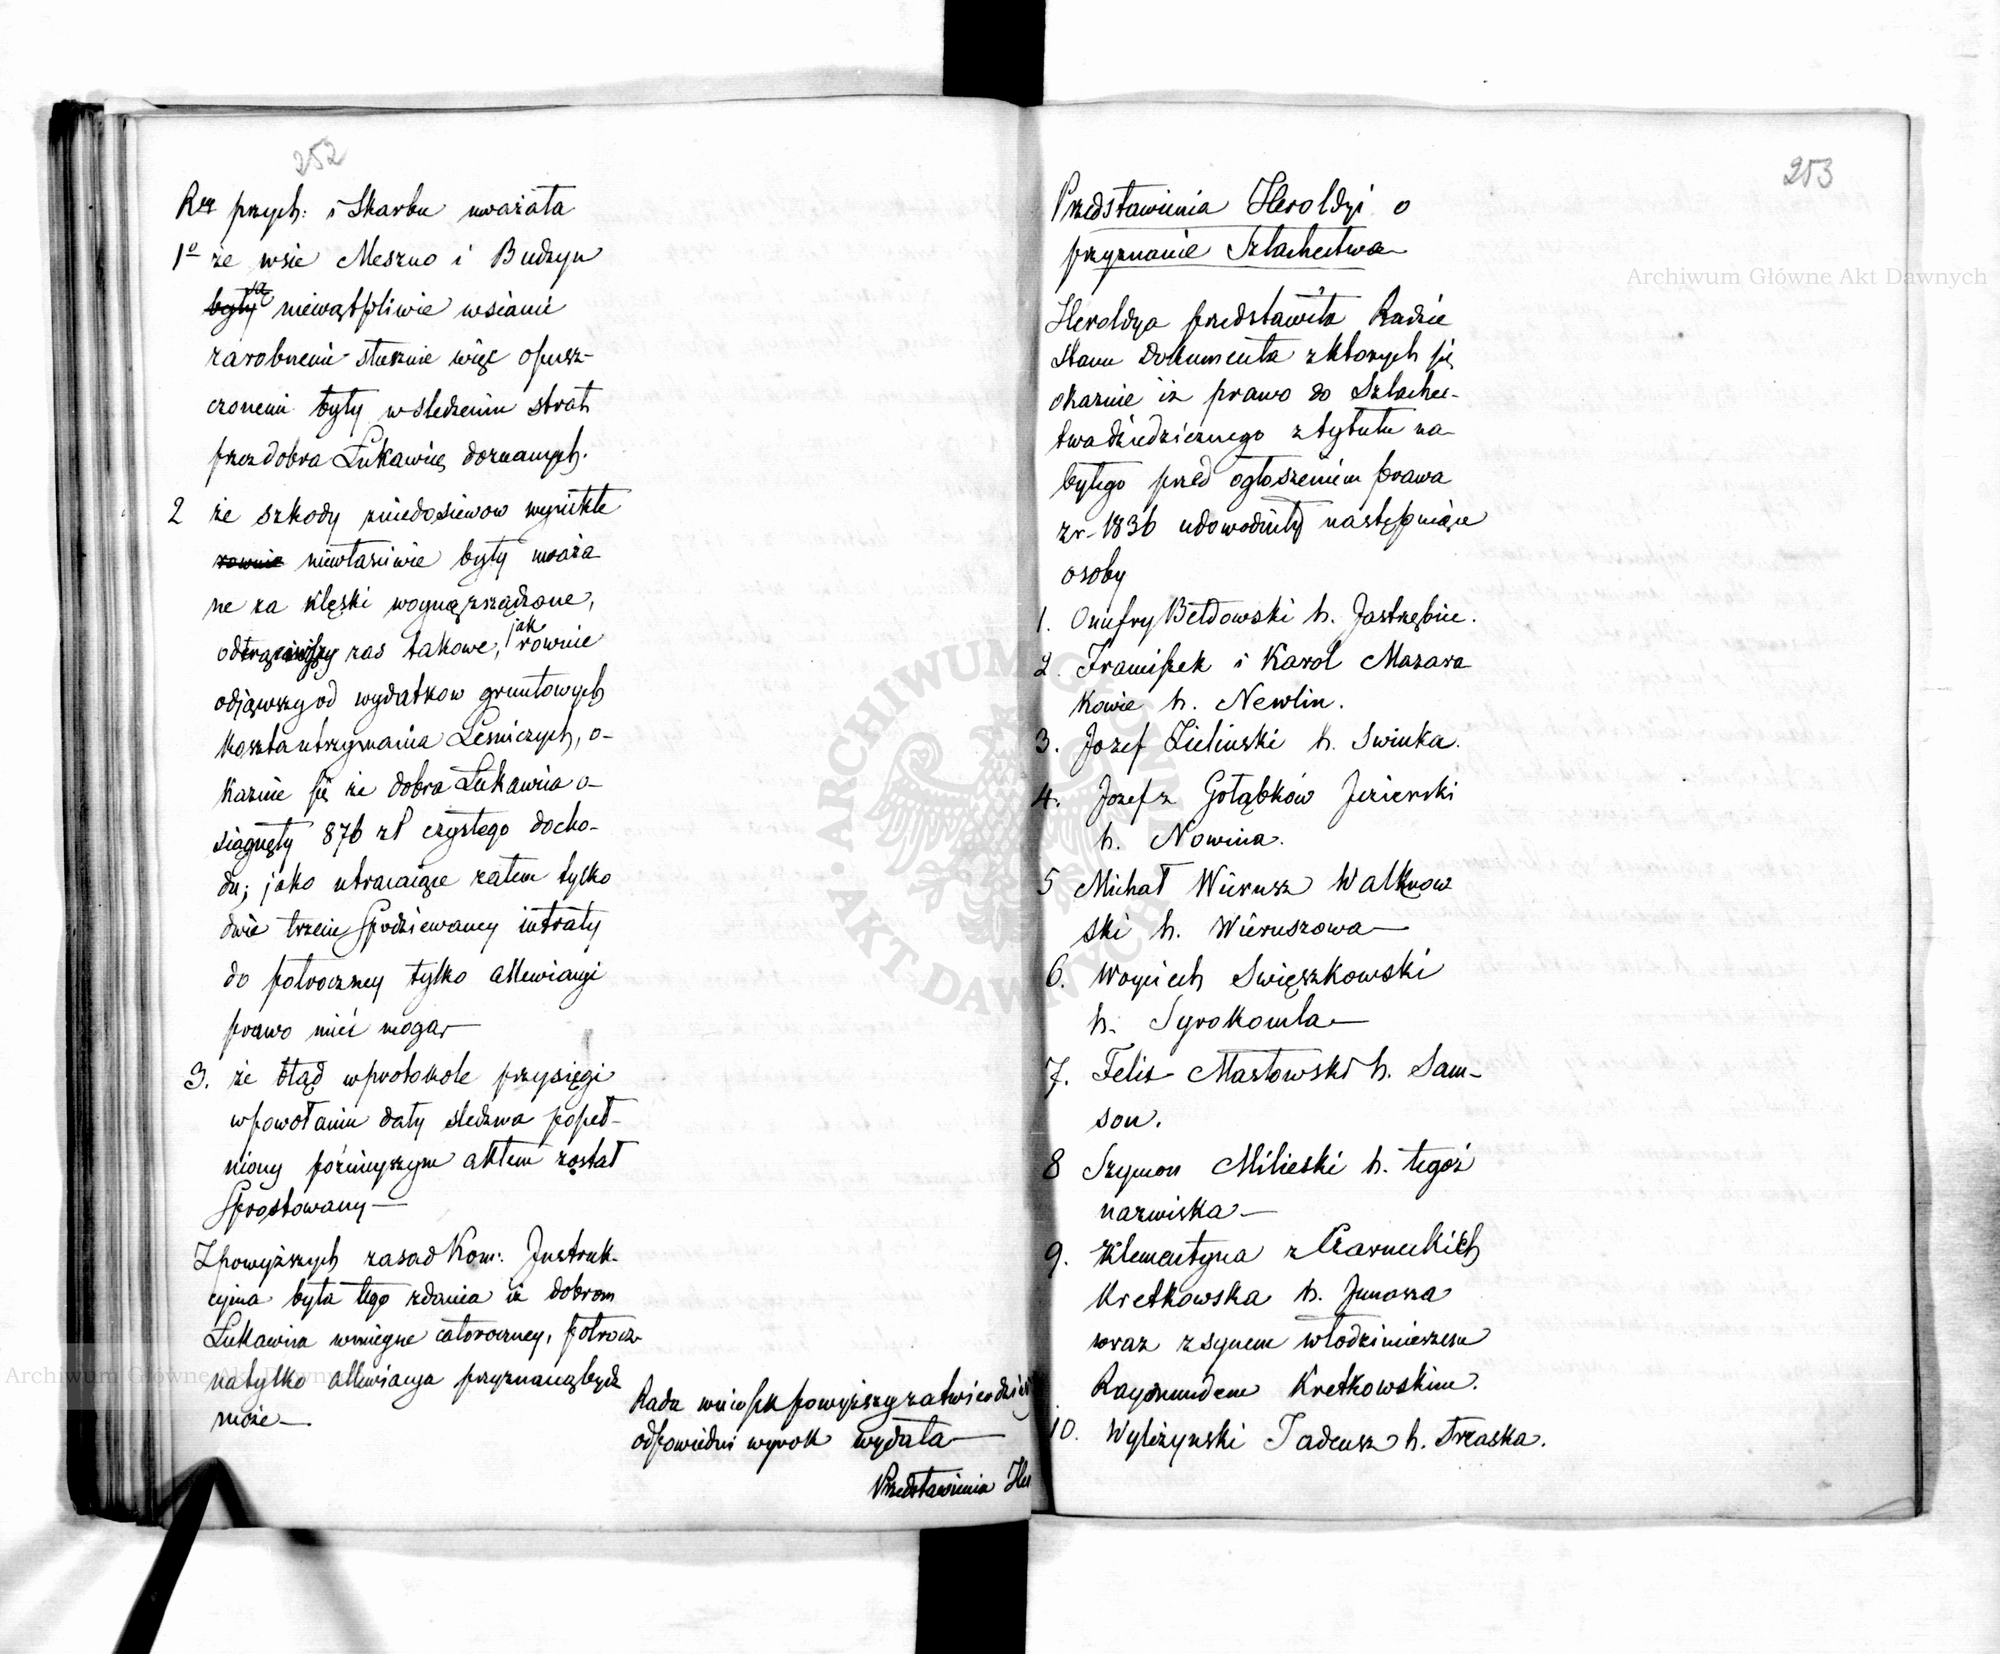 252
Rzą przych: i Skarbu uważała
1º że wsie Meszno i Budzyn
były są niewątpliwie wsiami
zarobnemi słusznie więc opusz-
czonemi były w śledzeniu strat
przez dobra Łukawicę doznanych.
2 że szkody zniedosiewow wynikłe
rownie niewłaściwie były uważa
ne za klęski woyną zrządzone,
odtrąciwszy zas takowe, jak rownie
odjąwszy od wydatkow gruntowych
koszta utrzymania Leśniczych, o-
każuie się że dobra Łukawica o-
siągnęły 876 zł czystego docho-
du; jako utracaiące zatem tylko
dwie trzecie spodziewaney intraty
do połroczney tylko allewiacyi
prawo mieć mogą—
3. że błąd w protokole przysięgi
w powołaniu daty śledztwa popeł-
niony poźnieyszym aktem został
sprostowany—
Z powyższych zasad Kom: Instruk-
cyina była tego zdania iż dobrom
Łukawica w mieysce całoroczney, połrocz-
na tylko allewiacya przyznaną bydź
może—
Rada wniosek powyższy zatwierdziwszy
odpowiedni wyrok wydała—
Przedstawienia Her
253
Przedstawienia Heroldyi o
przyznanie Szlachectwa—
Heroldya przedstawiła Radzie
Stanu dokumenta z ktorych się
okazuie iż prawo do Szlachec-
twa dziedzicznego z tytułu na-
bytego przed ogłoszeniem prawa
z r. 1836 udowodniły następuiące
osoby
1. Onufry Bełdowski h. Jastrzębiec.
2. Franciszek i Karol Mazara
kowie h. Newlin.
3. Jozef Zieliński h. Swinka.
4. Jozef z Gołąbków Jezierski
h. Nowina.
5 Michał Wierusz Walknow
ski h. Wieruszowa—
6. Woyciech Swięszkowski
h. Syrokomla—
7. Felix Masłowski h. Sam-
son.
8 Szymon Milieski h. tegoż
nazwiska—
9. Klementyna z Czarneckich
Kretkowska h. Junosza
wraz z synem Włodzimierzem
Raymundem Kretkowskim.
10. Wyliżyński Tadeusz h. Trzaska.
Archiwum Główne Akt Dawnych
Archiwum Główne Akt Dawnych
ARCHIWUM GŁÓWNE AKT DAWNYCH